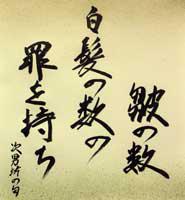 皺の数
白髪の数の
罪を持ち
次男坊の句